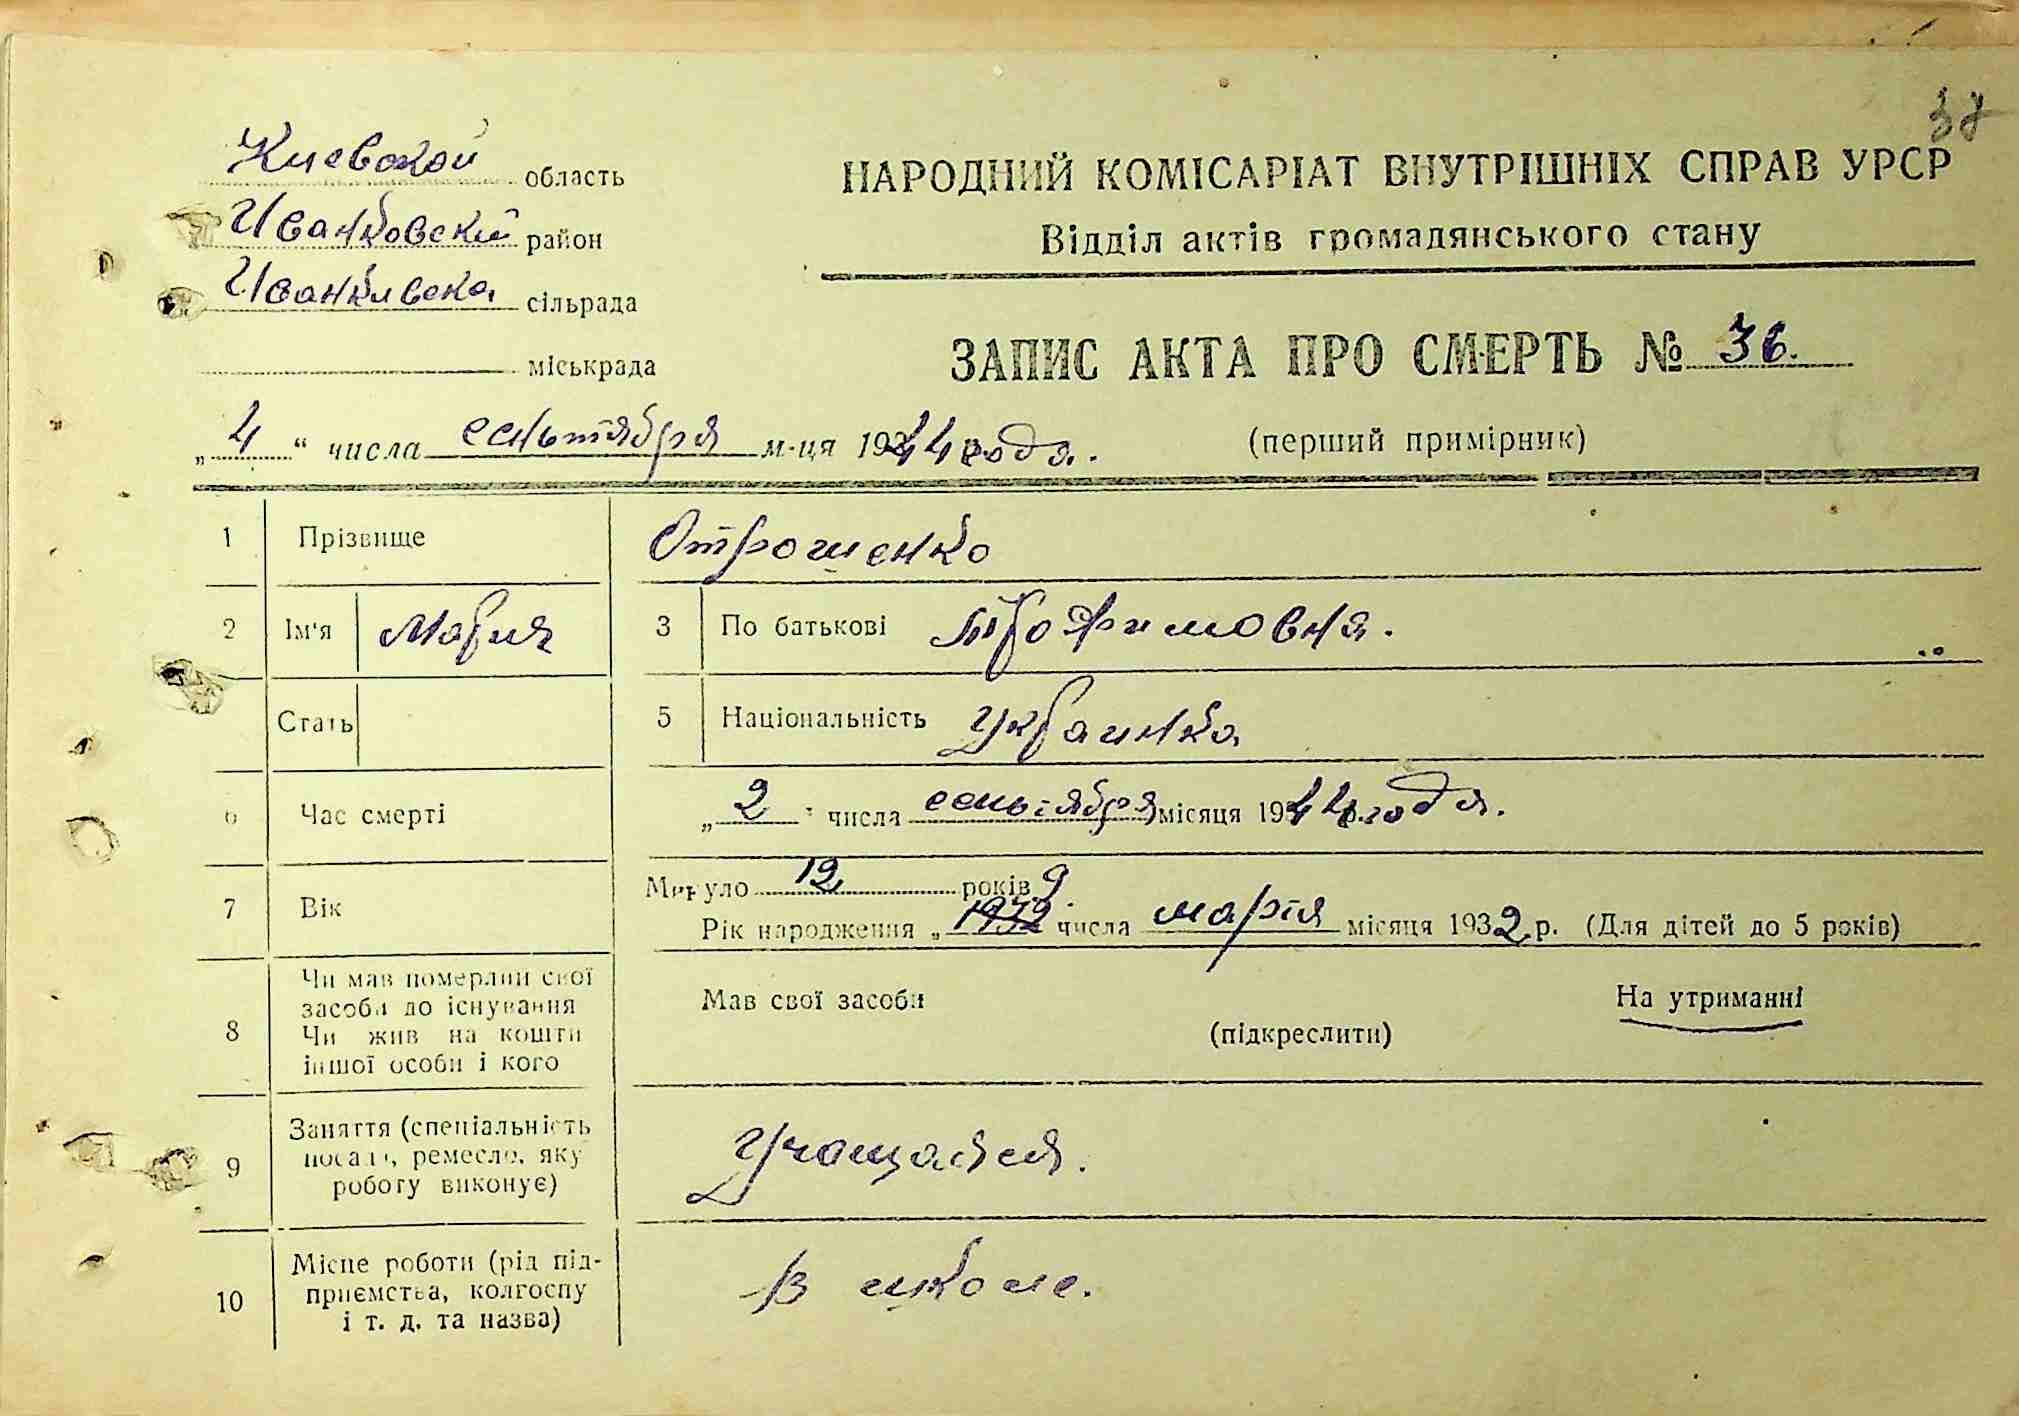 37
Киевской область
НАРОДНИЙ КОМІСАРІАТ ВНУТРІШНІХ СПРАВ УРСР
Иванковский район
Відділ актів громадянського стану
Иванкивска сільрада
ЗАПИС АКТА ПРО СМЕРТЬ № 36.
міськрада
„ 4 “ числа сеньтября м-ця 1944 года.
(перший примірник)
1 Прізвище Отрошенко
2 Ім'я Мария 3 По батькові Трофимовна.
Стать 5 Національність Украинка
6 Час смерті „ 2 " числа сеньтября місяця 1944 года.
7 Вік Минуло 12 років
Рік народження „ 1932 9 числа марта місяця 1932 р. (Для дітей до 5 років)
8 Чи мав померлий свої засоби до існування Чи жив на кошти іншої особи і кого
Мав свої засоби На утриманні
(підкреслити)
9 Заняття (спеціальність посада, ремесло, яку роботу виконує) Учащаяся.
10 Місце роботи (рід підприємства, колгоспу і т. д. та назва) В школе.